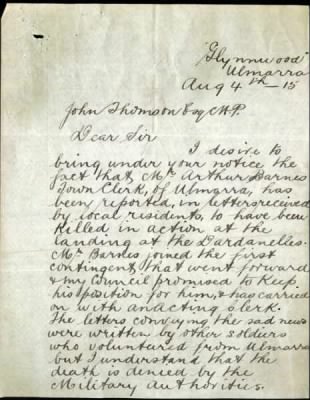 "Glynnwood"
Ulmarra
Aug 4th – 15
John Thomson Esq M.P.
Dear Sir
I desire to
bring under your notice the
fact that, Mr Arthur Barnes
Town Clerk, of Ulmarra, has
been reported, in letters received
by local residents, to have been
killed in action at the
landing at the Dardanelles.
Mr Barnes joined the first
contingent, that went forward
& my Council promised to keep
his position for him, & has carried
on with an Acting Clerk.
The letters conveying the sad news
were written by other soldiers
who volunteered from Ulmarra
but I understand that the
death is denied by the
Military Authorities.